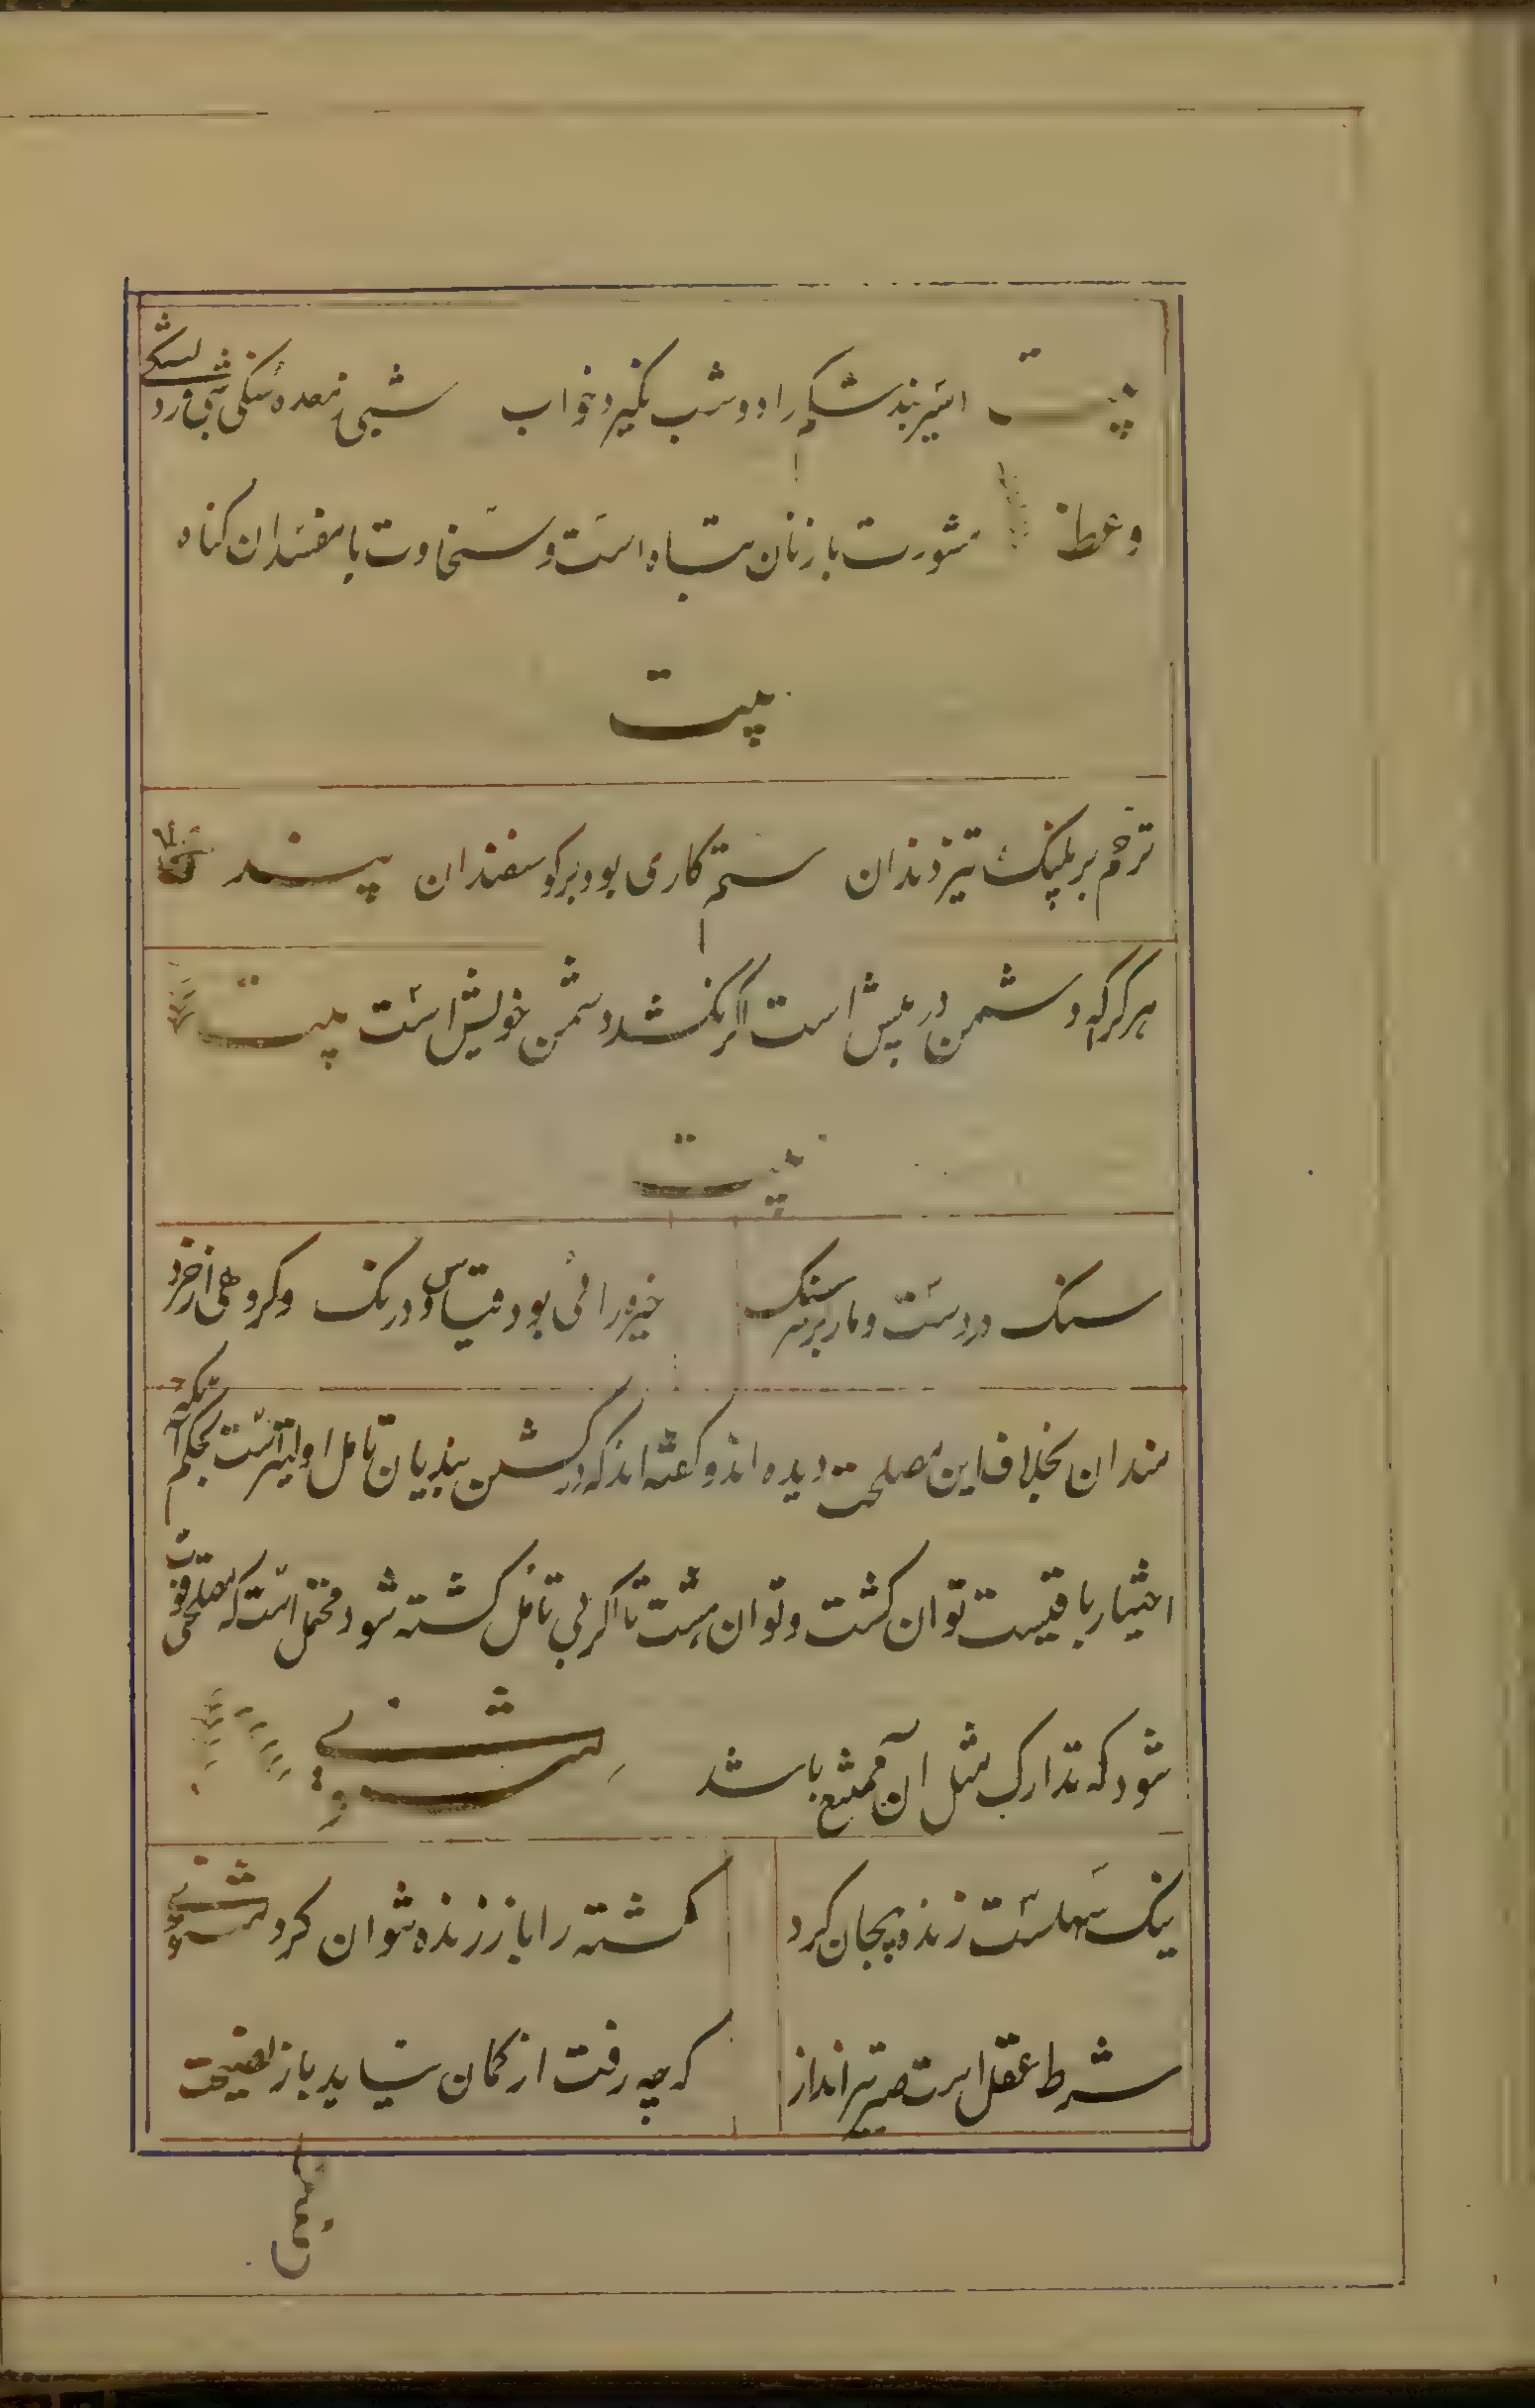 بیت اسیر بند شکم را دو شب نگیرد خواب شبی ز معده سنگی شبی ز دلتنگی
وعظ مشورت با زنان تباه است و سخاوت با مفسدان کناه
بیت
ترحم بر پلنک تیز دندان ستم کاری بود بر کوسفندان پند
هر کرا که دشمن در پیش است اگر نکشد دشمن خویش است بیت
بیت
سنک در دست و مار بر سر سنک خیره رائی بود قیاس و درنک و کروهی از خرد
مندان بخلاف این مصلحت دیده اند و کفته اند که در کشتن بندیان تامل اولیتر است بحکم آنکه
اختیار باقیست توان کشت و توان بخشت تا اگر بی تامل کشته شود محتمل است که مصلحتی فوت
شود که تدارک مثل آن ممتنع باشد مثنوی
نیک سهلست زنده بیجان کرد کشته را باز زنده نتوان کرد مثنوی
شرط عقل است صبر تیرانداز که چه رفت از کمان نیاید باز نصیحت